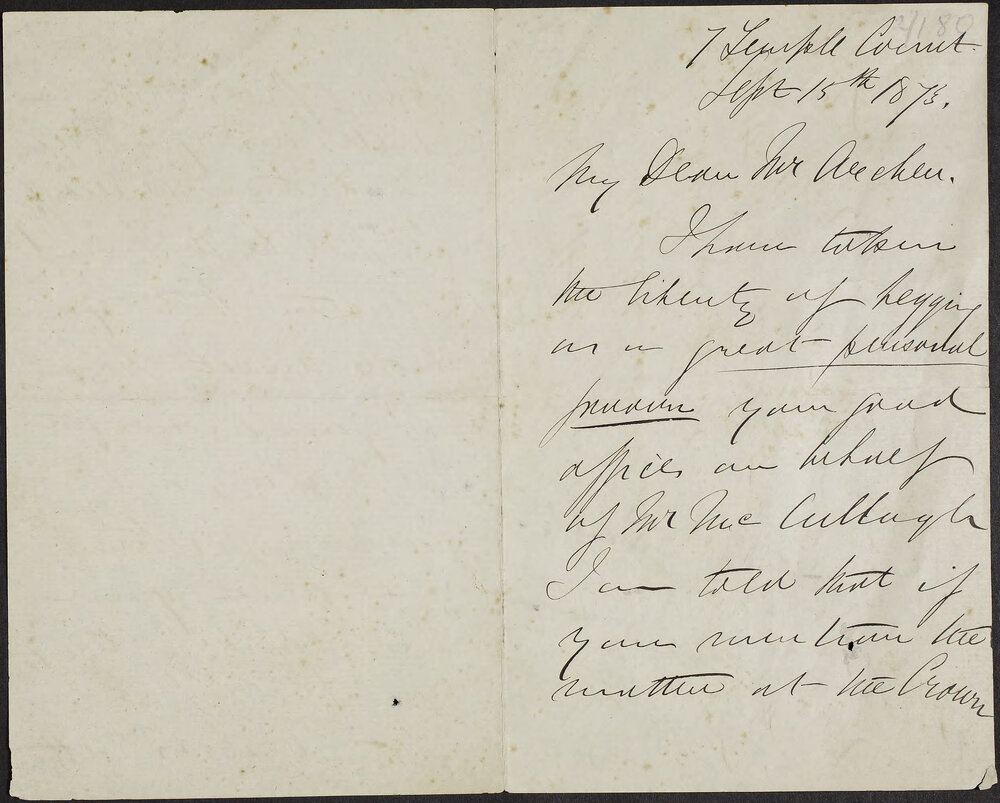 7 Temple Court
Sept 15th 1873.
My Dear Mr Archer.
I have taken
the liberty of begging
as a great personal
favour your good
offices on behalf
of Mr McCullagh
I am told that if
you mention the
matter at the Crown